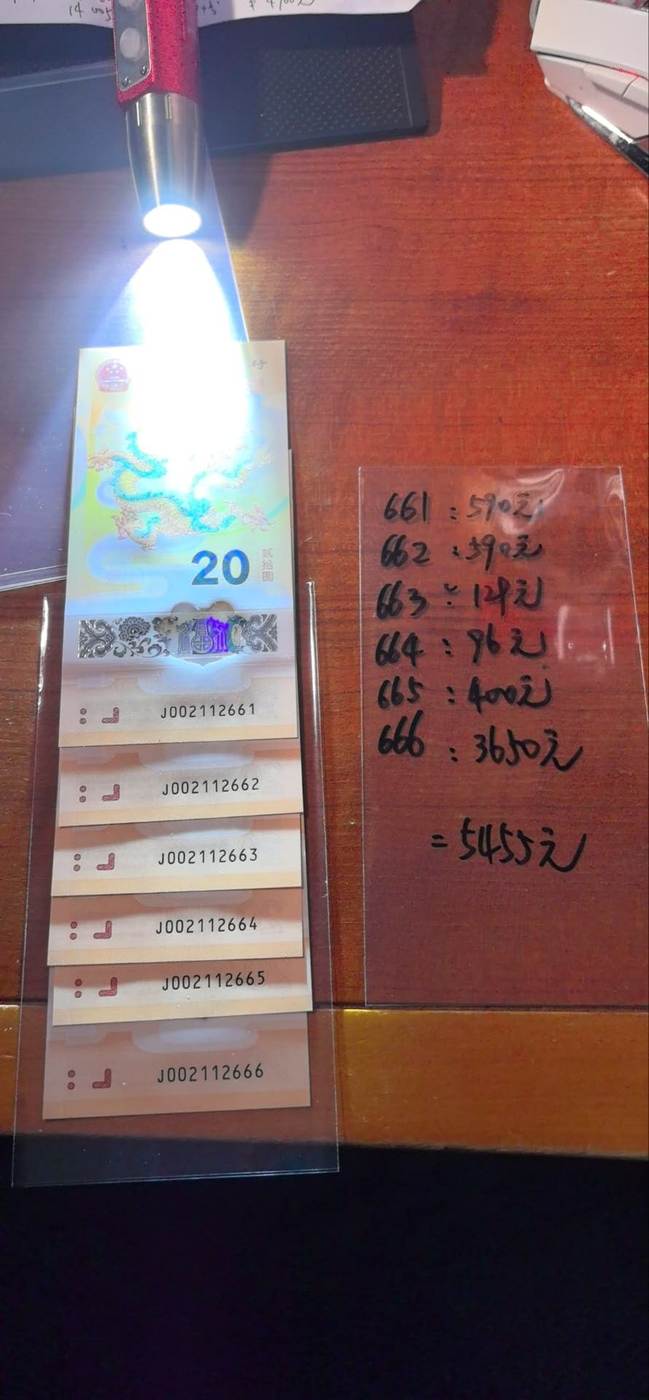 20
贰拾圆
J002112661
J002112662
J002112663
J002112664
J002112665
J002112666
661:590元
662:590元
663:129元
664:96元
665:400元
666:3650元
=5455元